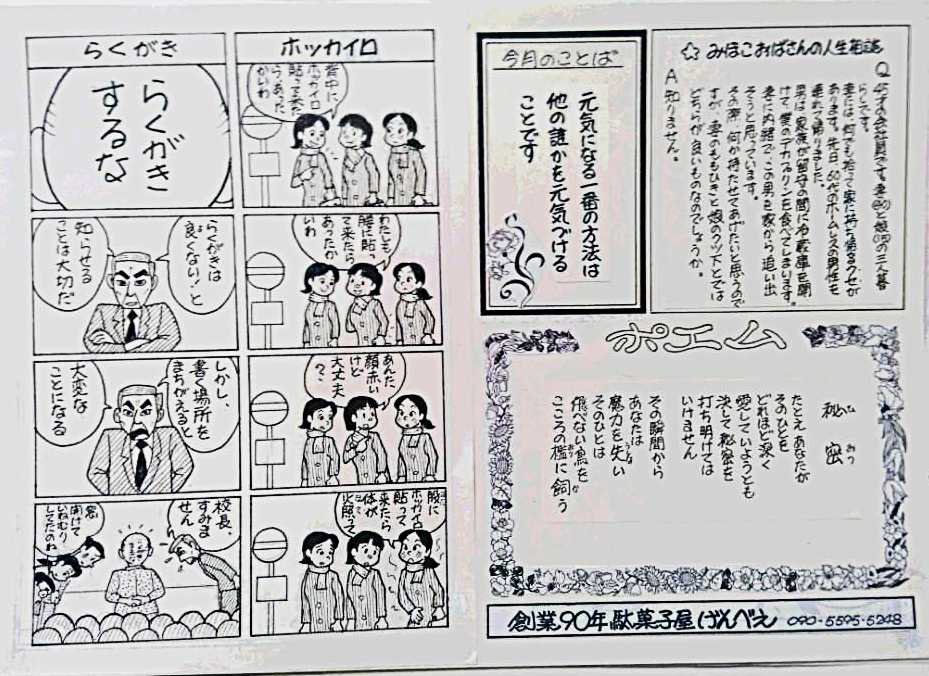 らくがき
らくがき
するな
らくがきは
良くない！と
知らせる
ことは大切だ
しかし、
書く場所を
まちがえると
大変な
ことになる
校長、
すみま
せん
窓
開けて
いねむり
してたのね
ホッカイロ
背中に
ホッカイロ
貼って来た
から、あった
かいわ
わたしも
腰に貼っ
て来たら
あったか
いわ
あんた、
顔赤い
けど
大丈夫
？
股に
ホッカイロ
貼って
来たら
体が
火照って
今月のことば
元気になる一番の方法は
他の誰かを元気づける
ことです
☆みほこおばさんの人生相談
Q
45才の会社員です。妻(40)と娘(15)の三人暮
らしです。
妻には、何でも拾って家に持ち帰るクセが
あります。先日、60代のホームレスの男性を
連れて帰りました。
男は、家族が留守の間に冷蔵庫を開
けて、僕のデカプリンを食べてしまいます。
妻に内緒で、この男を家から追い出
そうと思っています。
その際、何か持たせてあげたいと思うので
すが、妻のももひきと娘のクツ下とでは
どちらが良いものなのでしょうか。
A
知りません。
ポエム
秘密
ひみつ
たとえ あなたが
そのひとを
どれほど深く
愛していようとも
決して秘密を
打ち明けては
いけません
その瞬間から
あなたは
魔力を失い
そのひとは
飛べない鳥を
こころの檻に飼う
創業90年駄菓子屋げんべえ 090-5595-5248